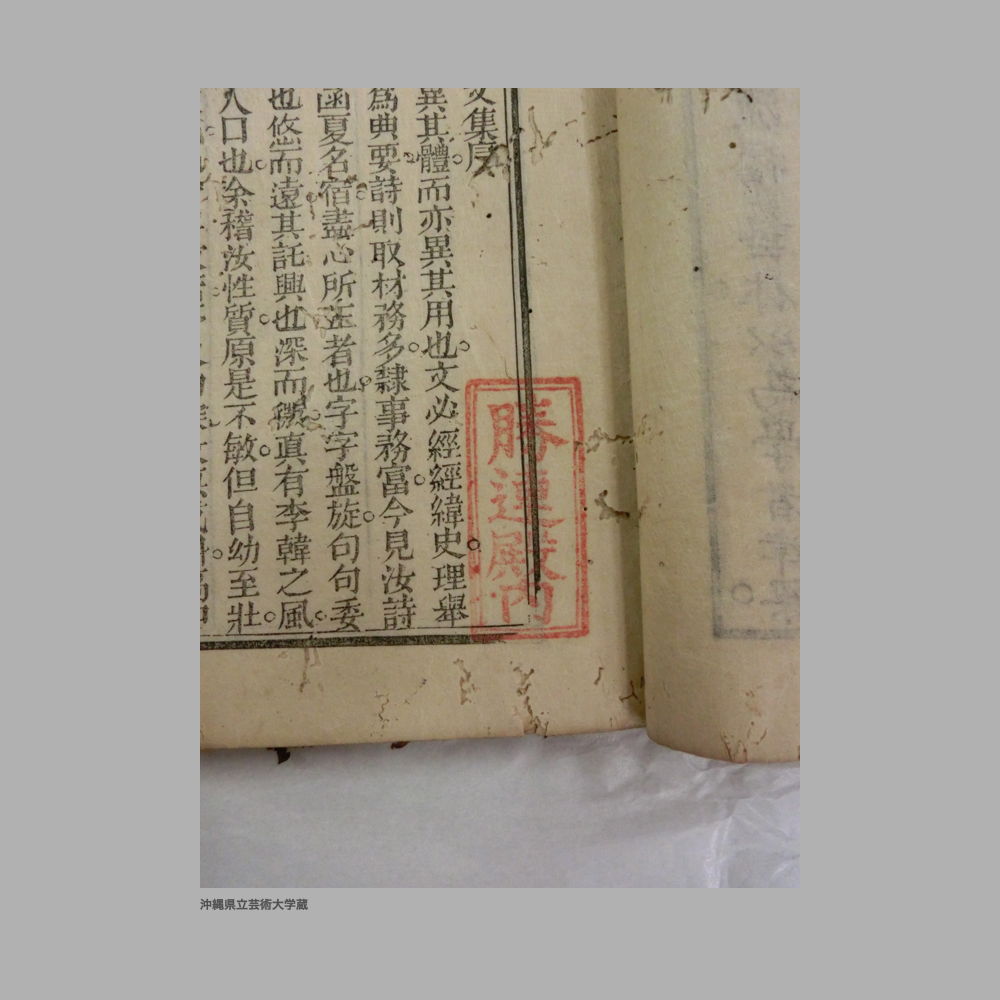 文集序
異其體而亦異其用也文必經經緯史理舉
爲典要詩則取材務多隸事務富今見汝詩
函夏名宿盡心所在者也字字盤旋句句委
也悠而遠其託興也深而穩眞有李韓之風
人口也余稽汝性質原是不敏但自幼至壯
勝連殿内
沖縄県立芸術大学蔵